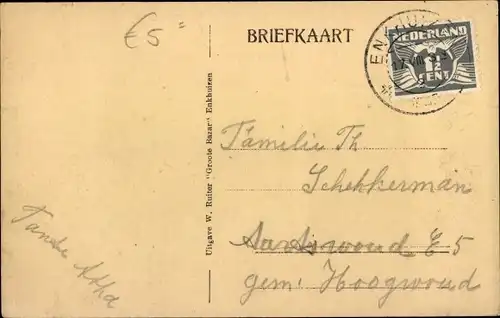 €5=
BRIEFKAART
NEDERLAND
1½
CENT
Uitgave W. Ruiter "Groote Bazar" Enkhuizen
Familie Th
Schekkerman
Aartswoud E5
gem. Hoogwoud
Tante Atha